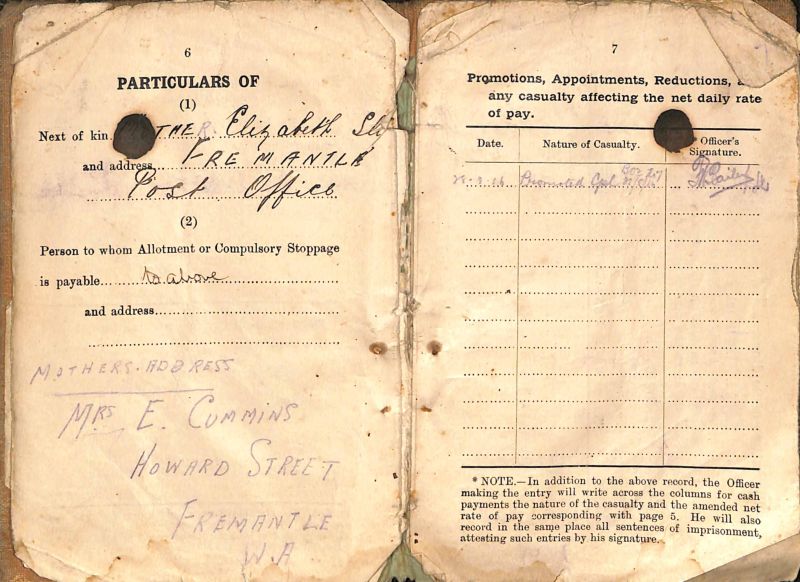 6
PARTICULARS OF
(1)
Next of kin THER Elizabeth
and address FREMANTLE
Post Office
(2)
Person to whom Allotment or Compulsory Stoppage
is payable to above
and address
MOTHERS. ADDRESS
MRS E. CUMMINS
HOWARD STREET
FREMANTLE
W.A
7
Promotions, Appointments, Reductions,
any casualty affecting the net daily rate
of pay.
Date. Nature of Casualty. * Officer's
Signature.
Promoted Cpl
* NOTE.—In addition to the above record, the Officer
making the entry will write across the columns for cash
payments the nature of the casualty and the amended net
rate of pay corresponding with page 5. He will also
record in the same place all sentences of imprisonment,
attesting such entries by his signature.